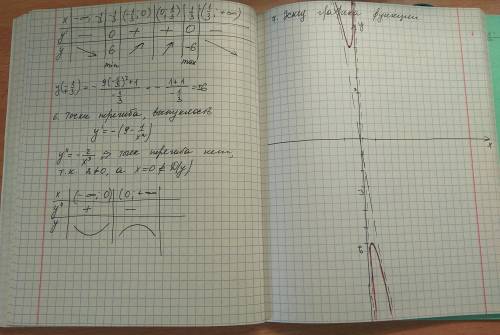 x | -∞, -1/3 | -1/3 | (-1/3, 0) | (0, 1/3) | 1/3 | (1/3, +∞)
y' | − | 0 | + | + | 0 | −
y | ↘ | 6 | ↗ | ↗ | -6 | ↘
min max
y(-1/3) = - (9(-1/3)²+1)/(-1/3) = - (1+1)/(-1/3) = 6
6. Точки перегиба, выпуклость
y' = -(9 - 1/x²)
y" = -2/x³, ⇒ точек перегиба нет,
т.к. 2≠0, а x=0 ∉ D(y)
x | (-∞, 0) | (0, +∞
y" | + | −
y
7. Эскиз графика функции
y
x
-6